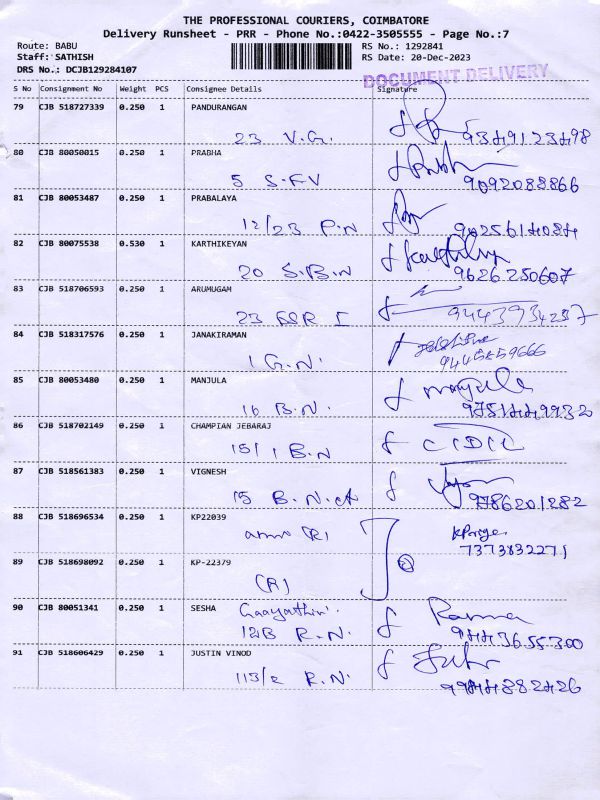 THE PROFESSIONAL COURIERS, COIMBATORE
Delivery Runsheet - PRR - Phone No.:0422-3505555 - Page No.:7
Route: BABU RS No.: 1292841
Staff: SATHISH RS Date: 20-Dec-2023
DRS No.: DCJB129284107
DOCUMENT DELIVERY
S No Consignment No Weight PCS Consignee Details Signature
79 CJB 518727339 0.250 1 PANDURANGAN
23 V.G.
80 CJB 80050015 0.250 1 PRABHA
5 S.F.V 9092088866
81 CJB 80053487 0.250 1 PRABALAYA
12/23 P.N
82 CJB 80075538 0.530 1 KARTHIKEYAN
20 S.B.N 9626250607
83 CJB 518706593 0.250 1 ARUMUGAM
23 I
84 CJB 518317576 0.250 1 JANAKIRAMAN
1 G.N.
85 CJB 80053480 0.250 1 MANJULA
Manjula
16 B.N. 9751449932
86 CJB 518702149 0.250 1 CHAMPIAN JEBARAJ
15/1 B.N
87 CJB 518561383 0.250 1 VIGNESH
15 B.N. 9786201282
88 CJB 518696534 0.250 1 KP22039
(R) 7373832271
89 CJB 518698092 0.250 1 KP-22379
(R)
90 CJB 80051341 0.250 1 SESHA Gaayathiri.
12B R.N. 9443655300
91 CJB 518606429 0.250 1 JUSTIN VINOD
113/2 R.N. 9944882426